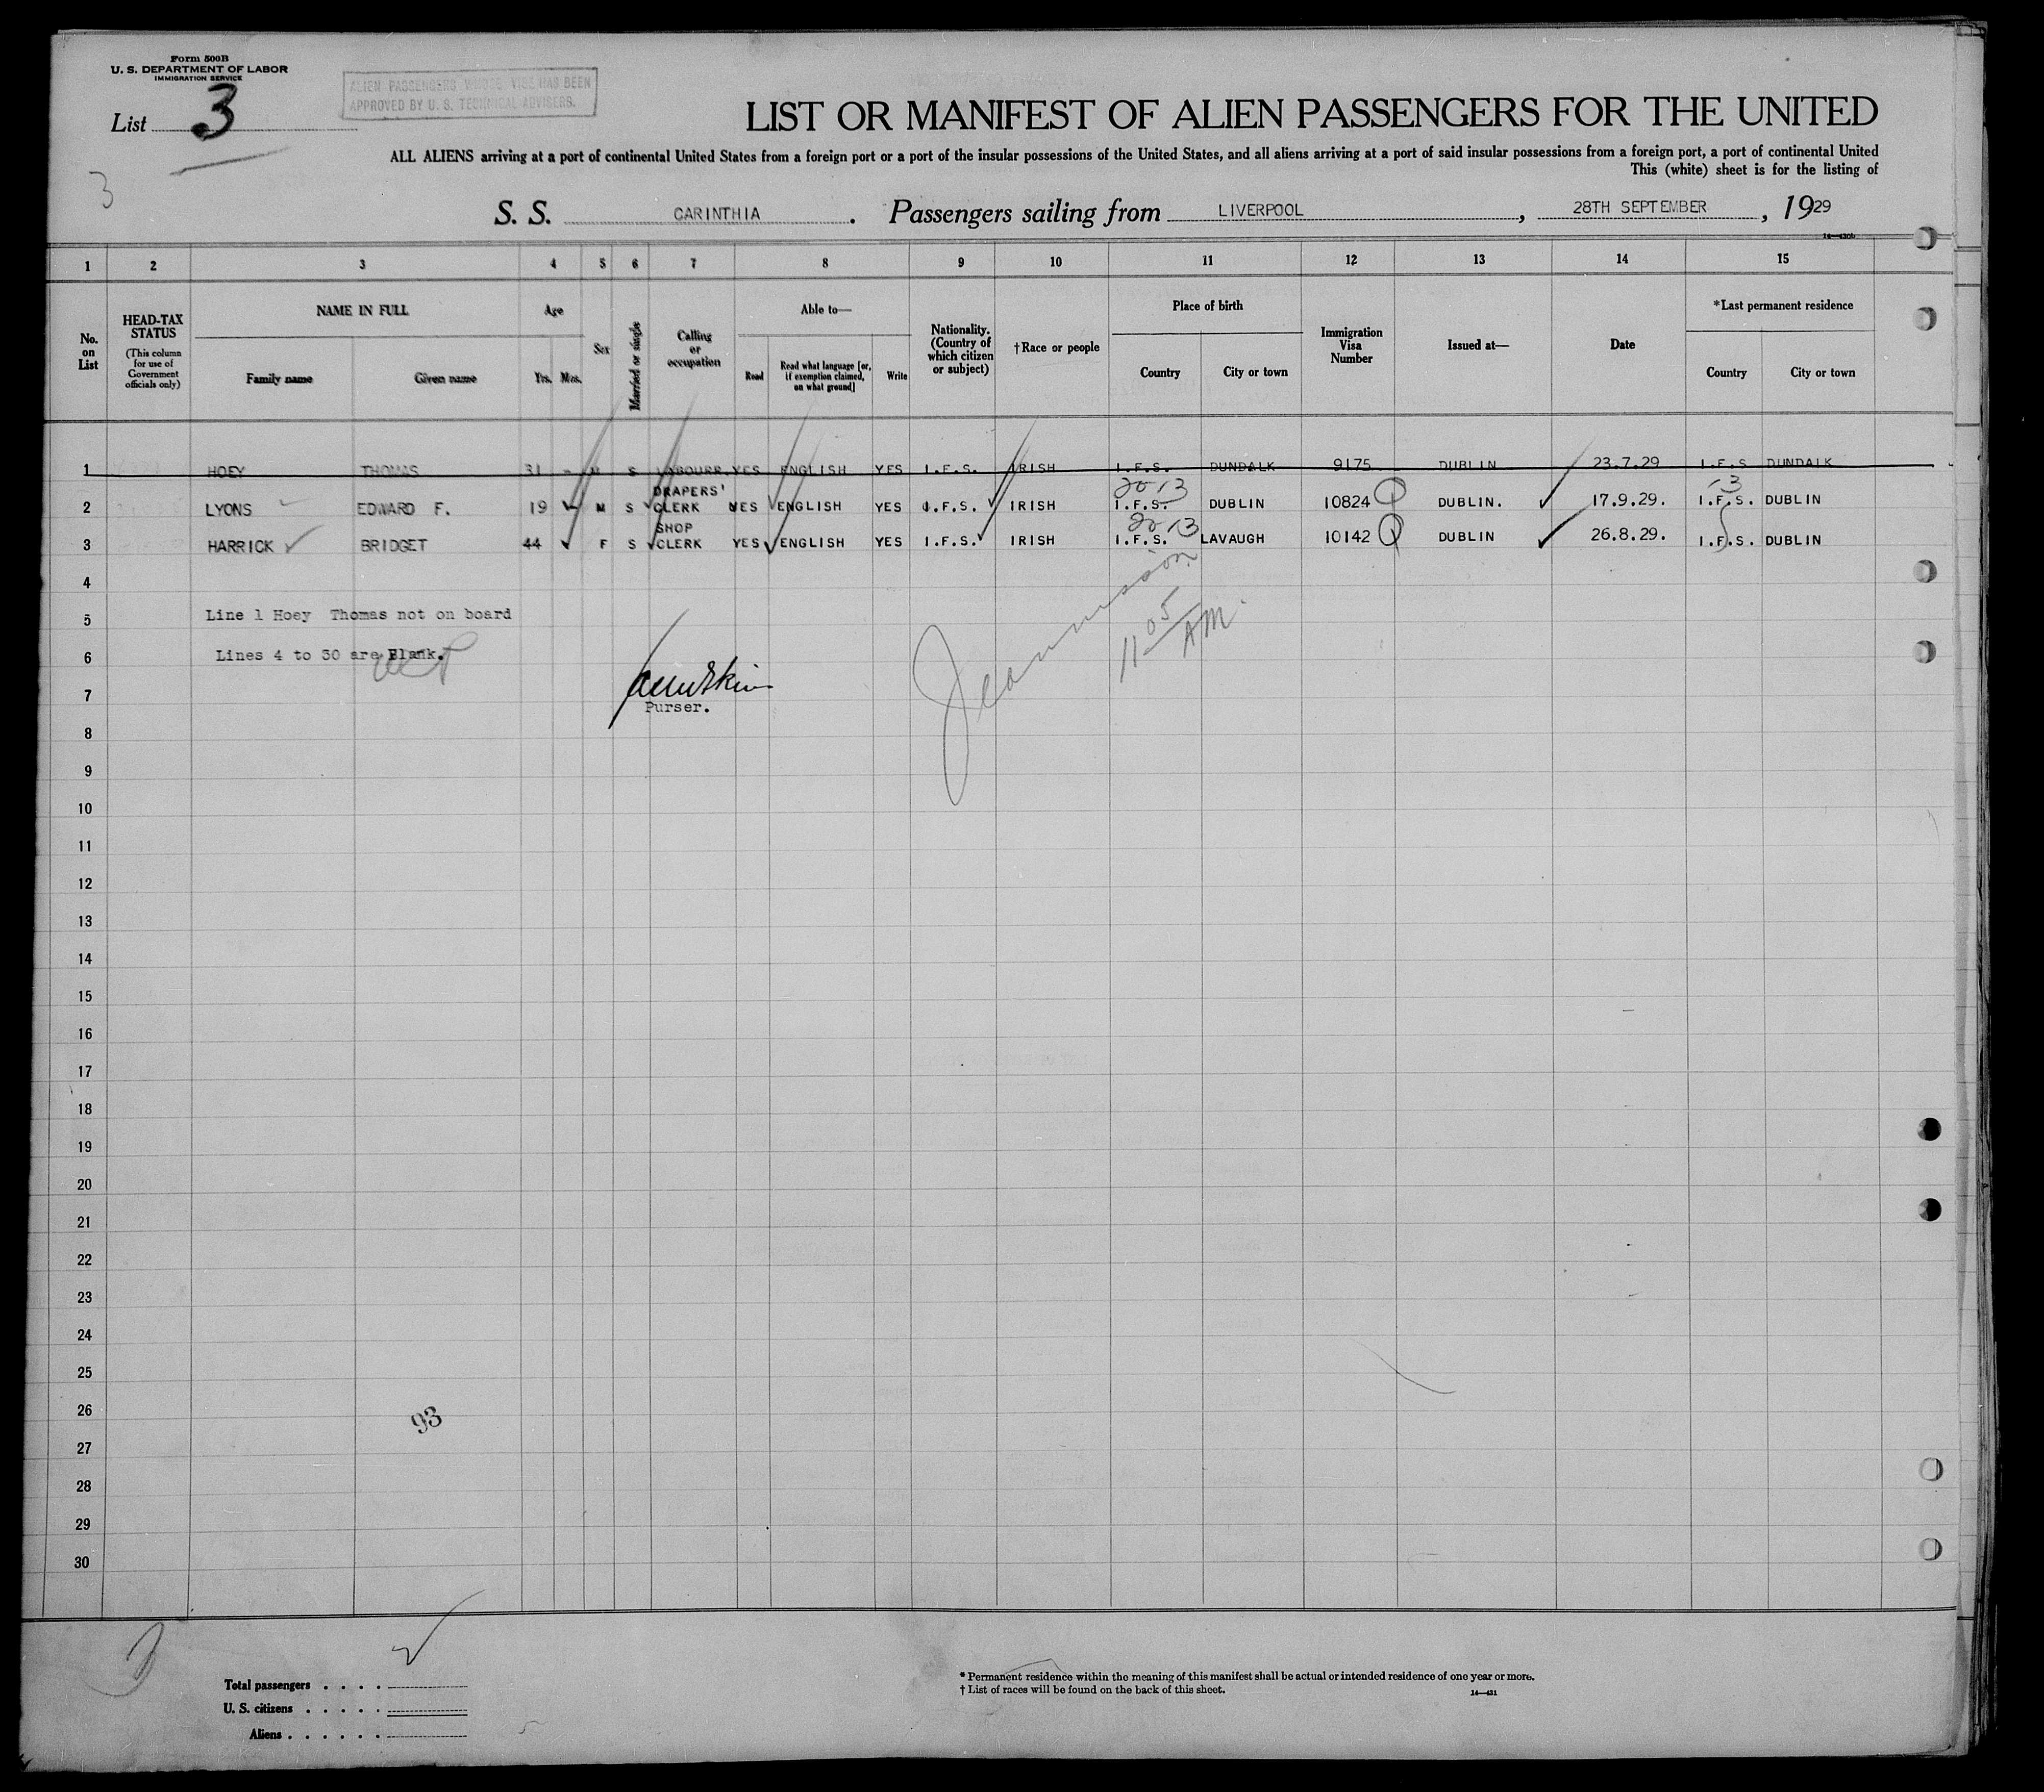 Form 500B
U. S. DEPARTMENT OF LABOR
IMMIGRATION SERVICE
ALIEN PASSENGERS WHOSE VISE HAS BEEN
APPROVED BY U. S. TECHNICAL ADVISERS.
List 3
3
LIST OR MANIFEST OF ALIEN PASSENGERS FOR THE UNITED
ALL ALIENS arriving at a port of continental United States from a foreign port or a port of the insular possessions of the United States, and all aliens arriving at a port of said insular possessions from a foreign port, a port of continental United
This (white) sheet is for the listing of
S. S. CARINTHIA. Passengers sailing from LIVERPOOL, 28TH SEPTEMBER, 1929
14—430b
1 2 3 4 5 6 7 8 9 10 11 12 13 14 15
No. on List
HEAD-TAX STATUS (This column for use of Government officials only)
NAME IN FULL
Family name Given name
Age
Yrs. Mos.
Sex
Married or single
Calling or occupation
Able to—
Read Read what language [or, if exemption claimed, on what ground] Write
Nationality. (Country of which citizen or subject)
†Race or people
Place of birth
Country City or town
Immigration Visa Number
Issued at—
Date
*Last permanent residence
Country City or town
1 HOEY THOMAS 31 - M S LABOURR. YES ENGLISH YES I.F.S. IRISH I.F.S. DUNDALK 9175 DUBLIN 23.7.29 I.F.S DUNDALK
2 LYONS EDWARD F. 19 M S DRAPERS' CLERK YES ENGLISH YES I.F.S. IRISH I.F.S. DUBLIN 10824 Q DUBLIN. 17.9.29. I.F.S. DUBLIN
3 HARRICK BRIDGET 44 F S SHOP CLERK YES ENGLISH YES I.F.S. IRISH I.F.S. LAVAUGH 10142 Q DUBLIN 26.8.29. I.F.S. DUBLIN
4
5 Line 1 Hoey Thomas not on board
6 Lines 4 to 30 are Blank.
11 05 AM
7 Purser.
8
9
10
11
12
13
14
15
16
17
18
19
20
21
22
23
24
25
26
93
27
28
29
30
Total passengers . . . .
U. S. citizens . . . . .
Aliens . . . . . .
* Permanent residence within the meaning of this manifest shall be actual or intended residence of one year or more.
† List of races will be found on the back of this sheet.
14—431